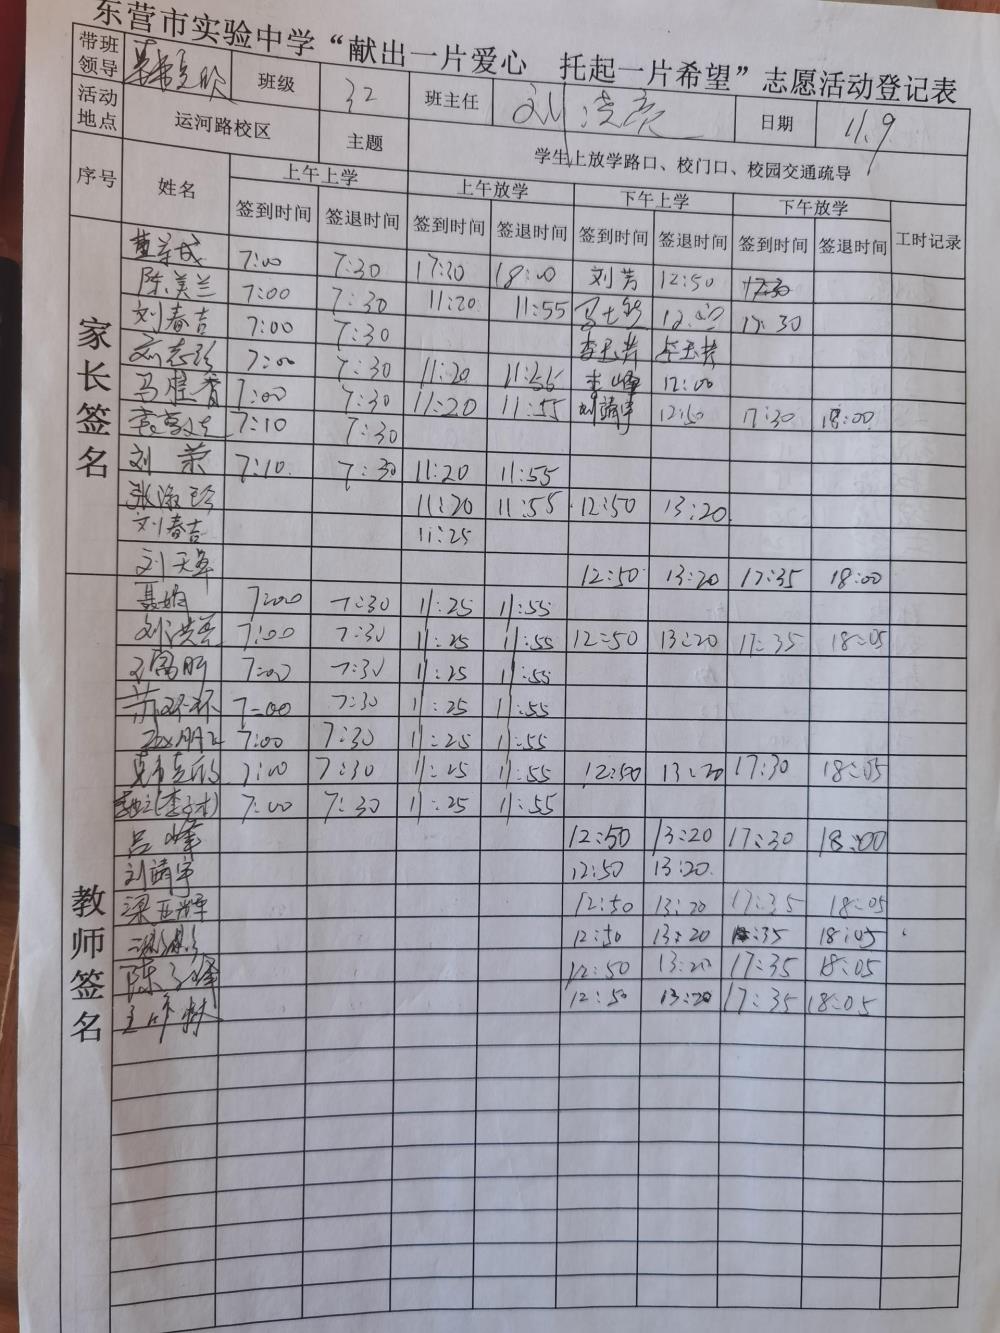 东营市实验中学“献出一片爱心 托起一片希望”志愿活动登记表
带班领导 班级 32 班主任 刘洪亮 日期 11.9
活动地点 运河路校区 主题 学生上放学路口、校门口、校园交通疏导
序号 姓名 上午上学 上午放学 下午上学 下午放学 工时记录
签到时间 签退时间 签到时间 签退时间 签到时间 签退时间 签到时间 签退时间
家长签名
7:00 7:30 17:30 18:00 刘芳 12:50 17:30
陈美兰 7:00 7:30 11:20 11:55 17:30
刘春吉 7:00 7:30
7:00 7:30 11:20 11:55 李峰 12:00
马健香 7:00 7:30 11:20 11:55 刘靖宇 12:50 17:30 18:00
7:10 7:30
刘荣 7:10 7:30 11:20 11:55
张淑珍 11:20 11:55 12:50 13:20
刘春吉 11:25
刘天军 12:50 13:20 17:35 18:00
教师签名
聂娟 7:00 7:30 11:25 11:55
刘洪亮 7:00 7:30 11:25 11:55 12:50 13:20 17:35 18:05
7:00 7:30 11:25 11:55
苏环环 7:00 7:30 11:25 11:55
7:00 7:30 11:25 11:55
7:00 7:30 11:25 11:55 12:50 13:20 17:30 18:05
7:00 7:30 11:25 11:55
吕峰 12:50 13:20 17:30 18:00
刘靖宇 12:50 13:20
梁亚辉 12:50 13:20 17:35 18:05
12:50 13:20 :35 18:05
陈子峰 12:50 13:20 17:35 18:05
12:50 13:20 17:35 18:05